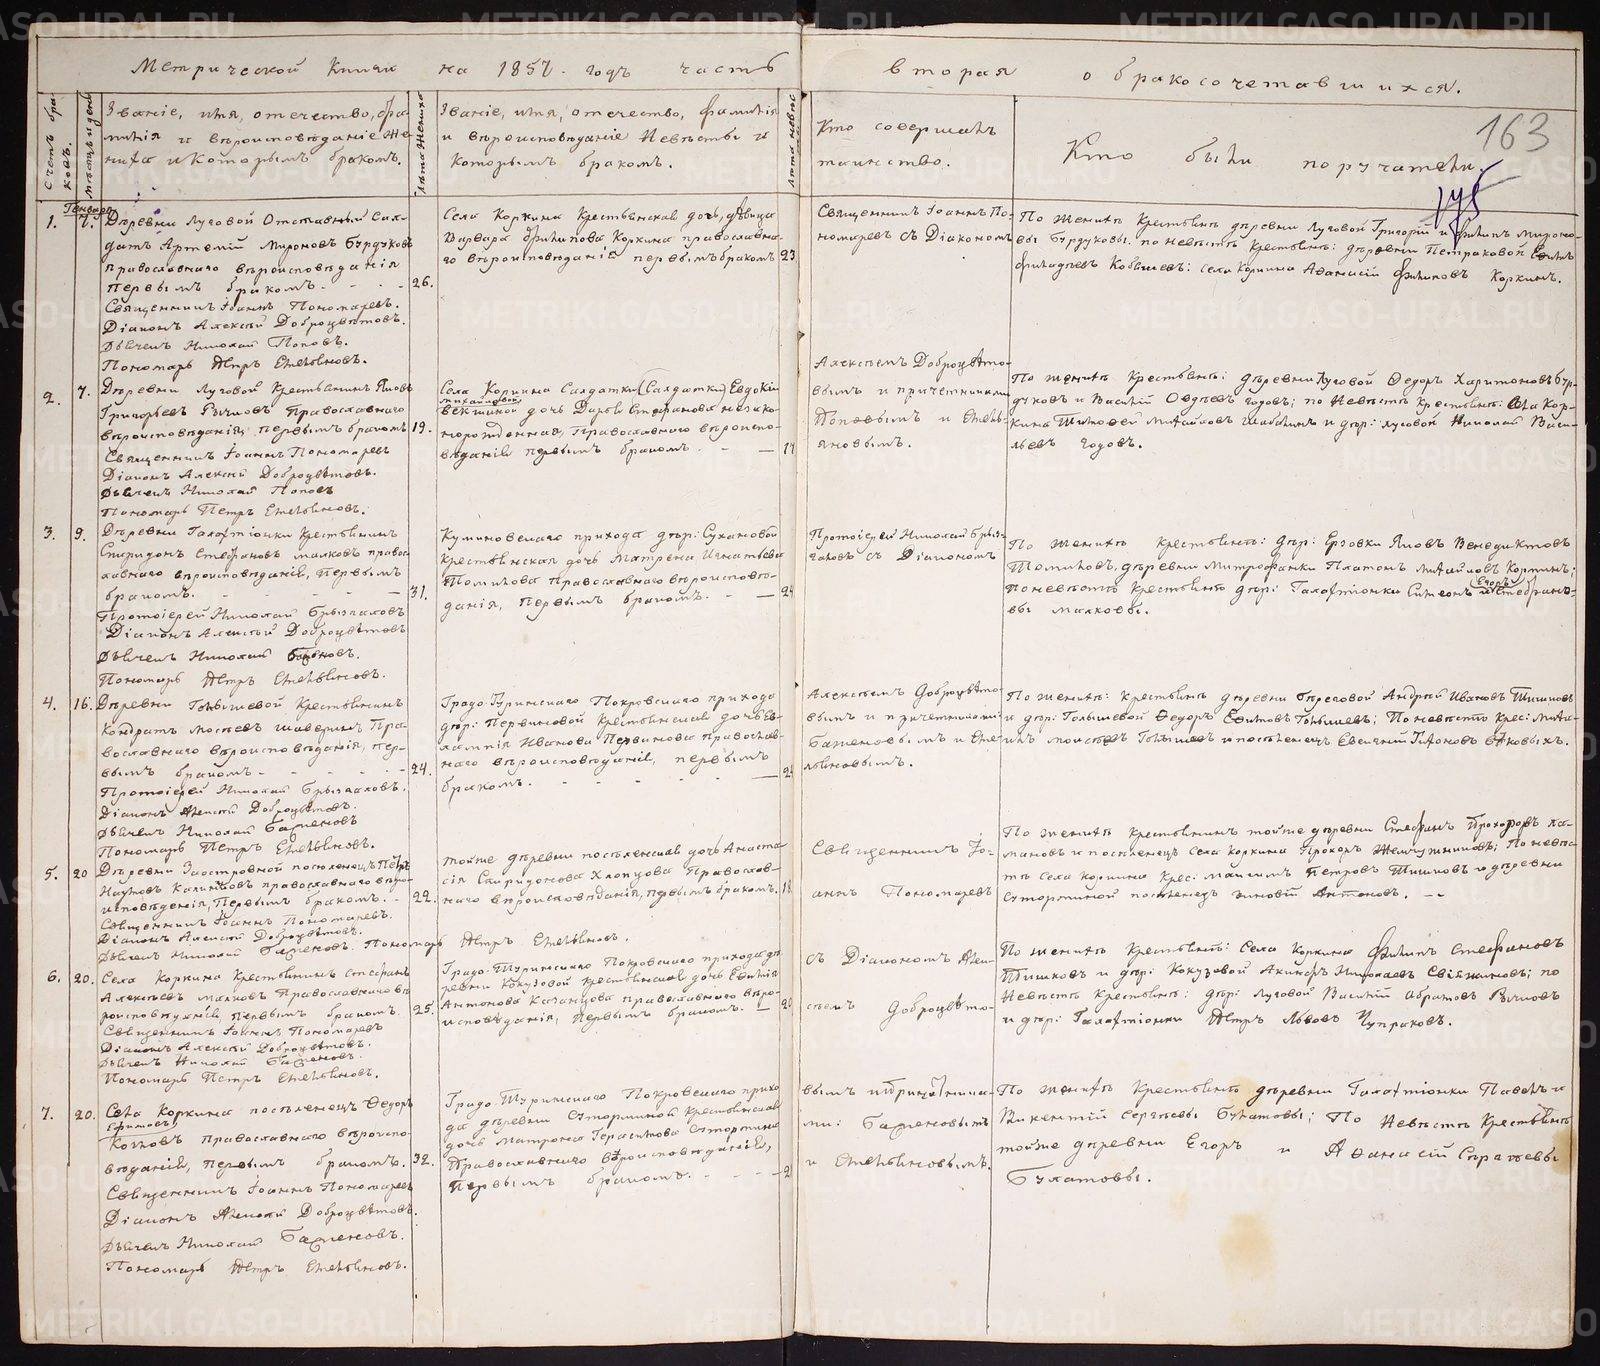 Метрической книги на 1857. годъ часть вторая о бракосочетавшихся.
163
Счетъ браковъ.
Мѣсяцъ и день
Званіе, имя, отечество, фа-
милія и вѣроисповѣданіе же-
ниха и которымъ бракомъ.
Лѣта жениха
Званіе, имя, отечество, фамилія
и вѣроисповѣданіе невѣсты и
которымъ бракомъ.
Лѣта невѣс
Кто совершалъ
таинство.
Кто были поручатели.
Генварь
1. 7. Деревни Луговой Отставный Сал-
датъ Артемій Мироновъ Бурдуковъ
православнаго вѣроисповѣданія
первымъ бракомъ. 26.
Священникъ Іоаннъ Пономаревъ.
Діаконъ Алексѣй Доброцвѣтовъ.
Дьячекъ Николай Поповъ.
Пономарь Петръ Емельяновъ.
Села Коркина крестьянская дочь, дѣвица
Варвара Филипова Коркина православна-
го вѣроисповѣданія первымъ бракомъ 23
Священникъ Іоаннъ По-
номаревъ съ Діакономъ
По женихѣ крестьяне деревни Луговой Григорій и Филипъ Мироно-
вы Бурдуковы. по невѣстѣ крестьяне: деревни Петраковой
Кобяшевъ: села Коркина Афанасій Филиповъ Коркинъ.
2. 7. Деревни Луговой крестьянинъ Яковъ
Григорьевъ Рычковъ православнаго
вѣроисповѣданія, первымъ бракомъ 19.
Священникъ Іоаннъ Пономаревъ
Діаконъ Алексѣй Доброцвѣтовъ.
Дьячекъ Николай Поповъ
Пономарь Петръ Емельяновъ.
Села Коркина Салдатки (Салдатки) Евдокіи
Михайловой
Векшиной дочь Дарья Стефанова незако-
норожденная, православнаго вѣроиспо-
вѣданія первымъ бракомъ. 17
Алексѣемъ Доброцвѣто-
вымъ и причетниками
Поповымъ и Емель-
яновымъ.
По женихѣ крестьяне: деревни Луговой Федоръ Харитоновъ Бур-
дуковъ и Василій годовъ; по невѣстѣ крестьяне: села Кор-
кина Тимофей Михайловъ Шабалинъ и дер: луговой Николай Васи-
льевъ годовъ.
3. 9. Деревни Галактіонки крестьянинъ
Спиридонъ Стефановъ Малковъ правос-
лавнаго вѣроисповѣданія, первымъ
бракомъ. 31.
Протоіерей Николай Брызгаловъ
Діаконъ Алексѣй Доброцвѣтовъ
Дьячекъ Николай Баженовъ.
Пономарь Петръ Емельяновъ.
Куминовскаго прихода дер: Сухановой
крестьянская дочь Матрена Игнатьева
Томилова православнаго вѣроисповѣ-
данія, первымъ бракомъ. 24
Протоіерей Николай Брыз-
галовъ съ Діакономъ
По женихѣ крестьяне: дер: Ерзовки Яковъ Венедиктовъ
Томиловъ, деревни Митрофанки Платонъ Михайловъ Коркинъ;
по невѣстѣ крестьяне дер: Галактіонки Симеонъ и Егоръ Стефано-
вы Малковы.
4. 16. Деревни Голышевой крестьянинъ
Кондратъ Мосеевъ Шаверинъ пра-
вославнаго вѣроисповѣданія, пер-
вымъ бракомъ. 24.
Протоіерей Николай Брызгаловъ.
Діаконъ Алексѣй Доброцвѣтовъ.
Дьячекъ Николай Баженовъ
Пономарь Петръ Емельяновъ.
Градо Туринскаго Покровскаго прихода
дер: Первиновой крестьянская дочь Ев-
лампія Иванова Первинова православ-
наго вѣроисповѣданія, первымъ
бракомъ.
Алексѣемъ Доброцвѣто-
вымъ и причетниками:
Баженовымъ и Емель-
яновымъ.
По женихѣ: крестьяне деревни Береговой Андрей Ивановъ Тишковъ
и дер: Голышевой Федоръ Голышевъ; По невѣстѣ крес: Миха-
илъ Голышевъ и поселенецъ Евгеній
5. 20 Деревни Заостровной поселенецъ Петръ
Наумовъ православнаго вѣро-
исповѣданія, первымъ бракомъ. 22.
Священникъ Іоаннъ Пономаревъ.
Діаконъ Алексѣй Доброцвѣтовъ.
Дьячекъ Николай Баженовъ. Пономарь Петръ Емельяновъ.
Тойже деревни поселенская дочь Анаста-
сія Спиридонова Хлопцова Православ-
наго вѣроисповѣданія, первымъ бракомъ. 18
Священникъ Іо-
аннъ Пономаревъ
По женихѣ крестьянинъ тойже деревни Стефанъ Прохоровъ
и поселенецъ села Коркина Прохоръ Жемчужниковъ; По невѣс-
тѣ села Коркина крес: Максимъ Петровъ Тишковъ и деревни
Сторжиной поселенецъ Зиновій Антоновъ.
6. 20. Села Коркина крестьянинъ Стефанъ
Алексѣевъ Малковъ Православнаго вѣ-
роисповѣданія, первымъ бракомъ. 25.
Священникъ Іоаннъ Пономаревъ
Діаконъ Алексѣй Доброцвѣтовъ.
Дьячекъ Николай Баженовъ.
Пономарь Петръ Емельяновъ.
Градо Туринскаго Покровскаго прихода де-
ревни Кокузовой крестьянская дочь Евфимія
Антонова Казанцова православнаго вѣро-
исповѣданія, первымъ бракомъ. 20
съ Діакономъ Алек-
сѣемъ Доброцвѣто-
По женихѣ крестьяне: Села Коркина Филипъ Стефановъ
Тишковъ и дер: Кокузовой Акинфъ Николаевъ Свяжиновъ; по
невѣстѣ крестьяне: дер: Луговой Василій Рычковъ
и дер: Галактіонки Петръ Львовъ Чупраковъ.
7. 20. Села Коркина поселенецъ Федоръ
Ефимовъ
Котковъ православнаго вѣроиспо-
вѣданія, первымъ бракомъ. 32.
Священникъ Іоаннъ Пономаревъ
Діаконъ Алексѣй Доброцвѣтовъ.
Дьячекъ Николай Баженовъ.
Пономарь Петръ Емельяновъ.
Градо Туринскаго Покровскаго прихо-
да деревни Сторжиной крестьянская
дочь Матрона Герасимова Сторжина
Православнаго вѣроисповѣданія,
первымъ бракомъ.
вымъ и причетника-
ми: Баженовымъ
и Емельяновымъ.
По женихѣ крестьяне деревни Галактіонки Павелъ и
Викентій Сергѣевы Булатовы; По невѣстѣ крестьяне
тойже деревни Егоръ и Афанасій Сергѣевы
Булатовы.
METRIKI.GASO-URAL.RU